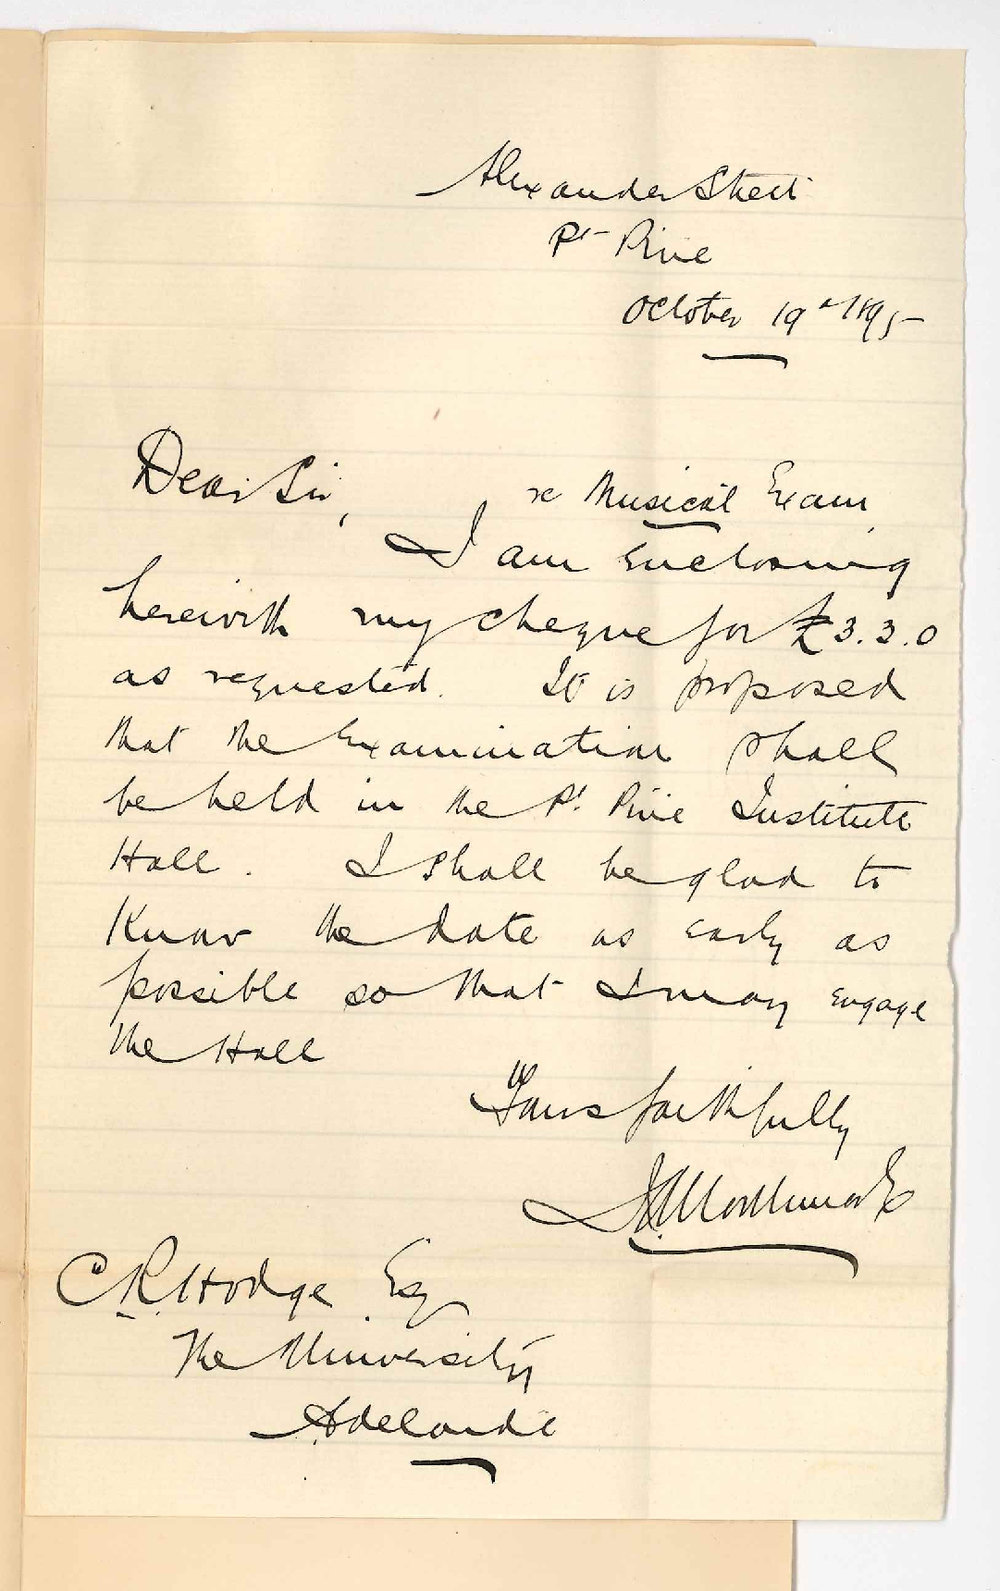 Alexander Street
Pt Pirie
October 19th 1895
Dear Sir,
re Musical Exam
I am enclosing
herewith my cheque for £3.3.0
as requested. It is proposed
that the Examination shall
be held in the Pt. Pirie Institute
Hall. I shall be glad to
know the date as early as
possible so that I may engage
the Hall
Yours faithfully
C.R. Hodge Esq
The University
Adelaide